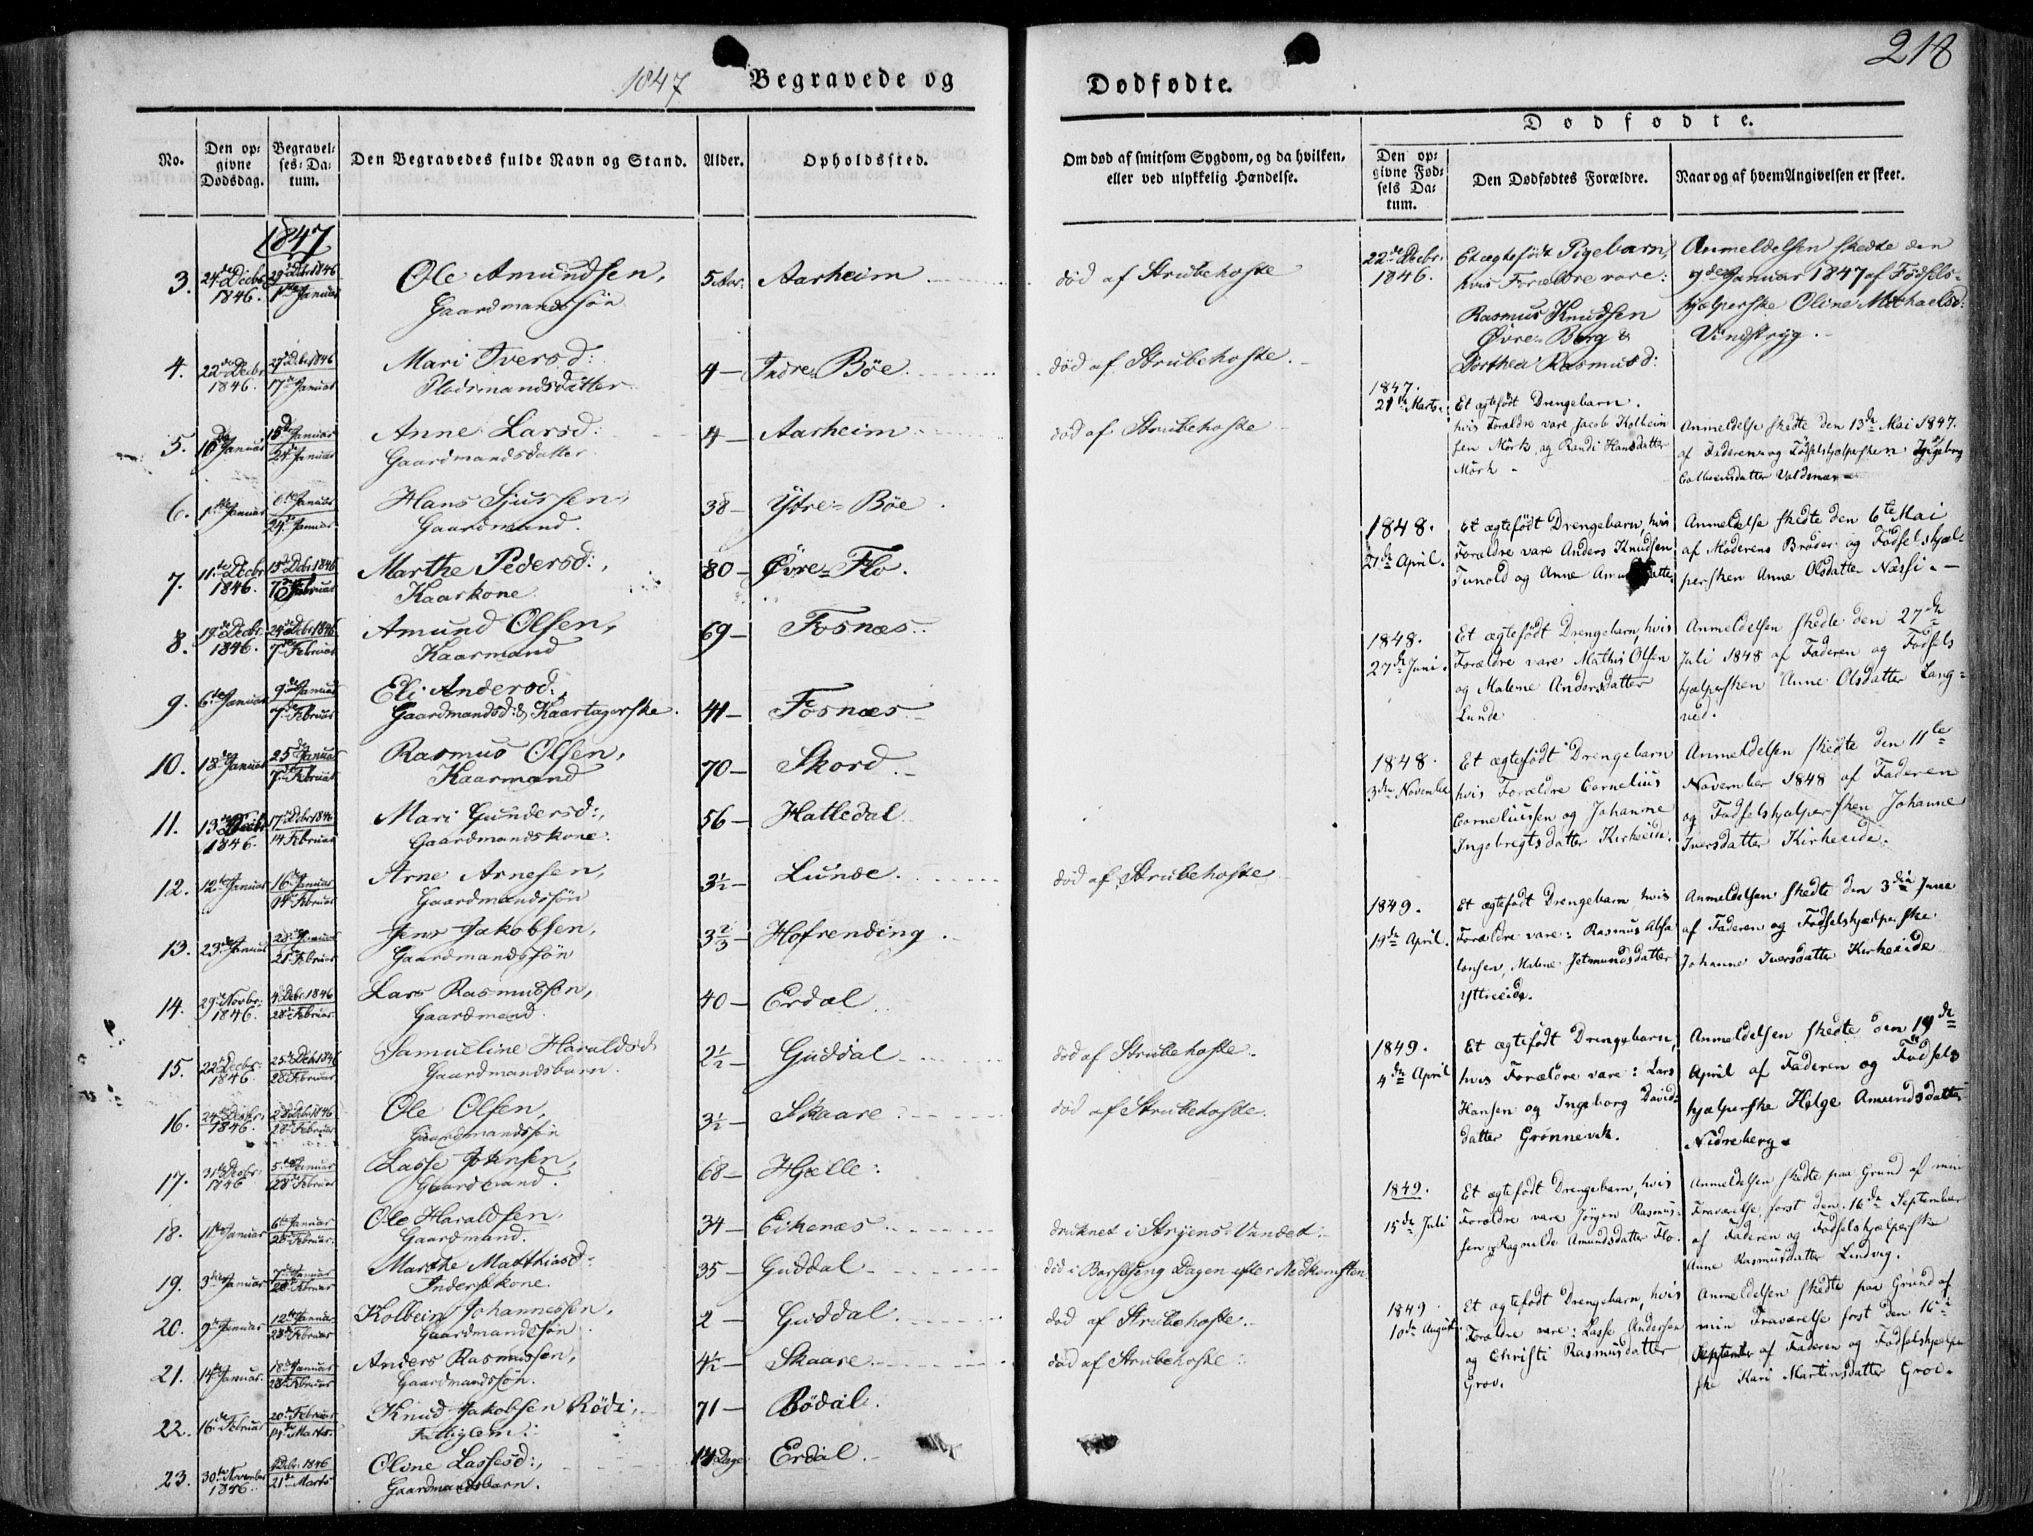 218
1847 Begravede og Dødfødte.
Dødfødte.
No.
Den op-
givne
Dødsdag.
Begravel-
ses-Da-
tum.
Den Begravedes fulde Navn og Stand.
Alder.
Opholdssted.
Om død af smitsom Sygdom, og da hvilken,
eller ved ulykkelig Hændelse.
Den op-
givne Fød-
sels Da-
tum.
Den Dødfødtes Forældre.
Naar og af hvem Angivelsen er skeet.
1847
3. 24de Decbr 1846. 29de Decbr 1846 1ste Januar Ole Amundsen, 5 Aar. Aarheim død af Strubehoste
Gaardmandssøn
4. 22de Decbr 1846. 29de Decbr 1846 17de Januar Mari Iversd: 4 — Indre Bøe. død af Strubehoste.
datter
5. 10de Januar 15de Januar 24de Januar Anne Larsd: 4 — Aarheim død af Strubehoste
Gaardmandsdatter
6. 1ste Januar 6te Januar 24de Januar Hans Sjursen, 38 — Ytre Bøe
Gaardmand.
7. 11te Decbr 1846. 15de Decbr 1846 7de Februar Marthe Pedersd:, 80 — Øvre Flo.
Kaarkone
8. 19de Decbr. 1846. 24de Decbr 1846 7de Februar Amund Olsen, 69 — Fosnæs.
Kaarmand
9. 6te Januar 9de Januar 7de Februar Eli Andersd: 41 — Fosnæs
Gaardmandsd: & Kaartagerske.
10. 18de Januar 25de Januar 7de Februar Rasmus Olsen, 70 — Skord.
Kaarmand
11. 13de Decbr 1846. 17de Decbr 1846 14 Februar Mari Gundersd:, 56 — Hattedal
Gaardmandskone.
12. 12te Januar 16de Januar 14de Februar Arne Arnesen, 3½ — Lunde. død af Strubehoste
Gaardmandssøn
13. 23de Januar 28de Januar 21de Februar Jens Jakobsen, 3⅔ — Hofrending.
Gaardmandssøn
14. 29de Novbr: 1846. 4de Decbr 1846 28de Februar Lars Rasmussen, 40 — Erdal
Gaardmand.
15. 22de Decbr: 1846. 25de Decbr 1846 28de Februar Samueline Haraldsd: 2½ — Guddal død af Strubehoste.
Gaardmandsbarn.
16. 24de Decbr: 1846. 28de Decbr 1846 28de Februar Ole Olsen, 3½ — Skaare død af Strubehoste.
Gaardmandssøn
17. 31te Decbr: 1846 5te Januar 28de Februar Lasse Johnsen, 68 — Hjelle:
Gaardmand.
18. 1ste Januar 6te Januar 28de Februar. Ole Haraldsen, 34 — Eikenæs druknet i Stryens-Vandet.
Gaardmand.
19. 3die Januar 7de Januar 28de Februar Marthe Matthiasd: 35 — Guddal død i Barselseng Dagen efter Nedkomsten
Inderstkone.
20. 9de Januar 12te Januar 28de Februar Kolbein Johannessen, 2 — Guddal død af Strubehoste.
Gaardmandssøn
21. 14de Januar. 18de Januar 28de Februar Anders Rasmussen, 4½ — Skaare død af Strubehoste.
Gaardmandssøn.
22. 16de Februar 20de Februar 14de Marts. Knud Jakobsen Rødi, 71 — Bødal.
Fattiglem:
23. 30te November 1846. 4de Decbr: 1846 21de Marts Oline Lassesd:, 14 Dage Erdal
Gaardmandsbarn.
22de Decbr: 1846.
Et ægtefødt Pigebarn,
hvis Forældre vare:
Rasmus Knudsen
Øvre-Berg &
Dorthea Rasmusd:
Anmeldelsen skedte den
9de Januar 1847 af Fødsels-
hjelperske Oline Michaelsd:
Vindstryg.
1847.
21de Marts.
Et ægtefødt Drengebarn.
hvis Forældre vare Jacob Kolbein
sen Mørk, og Randi Hansdatter
Mørk
Anmeldelse skedte den 13de Mai 1847.
af Faderen og Fødselshjelpersken Ingeborg
Kolbeinsdatter Valdsnæs
1848.
21de April.
Et ægtefødt Drengebarn, hvis
Forældre vare Anders Knudsen
Tunold og Anne
Anmeldelse skedte den 6te Mai
af Moderens Broder og Fødselshjæl-
persken Anne Olsdatter Næssi. —
1848.
27de Juni.
Et ægtefødt Drengebarn, hvis
Forældre vare Mathis Olsen
og Malene Andersdatter
Lunde
Anmeldelsen skedte den 27de
Juli 1848 af Faderen og Fødsels
hjelpersken Anne Olsdatter Lang-
ved.
1848.
3die November
Et ægtefødt Drengebarn
hvis Forældre Cornelius
Corneliussen og Johanne
Ingebrigtsdatter Kirkeeide.
Anmeldelsen skedte den 11te
November 1848 af Faderen
og Fødselshjelpersken Johanne
Iversdatter Kirkeeide.
1849.
19de April.
Et ægtefødt Drengebarn hvis
Forældre vare: Rasmus Absa
lonsen, Malene Jetmundsdatter
Yttreeide.
Anmeldelsen skedte den 3die June
af Faderen og Fødselshjelperske
Johanne Iversdatter Kirkeeide
1849.
4de April
Et ægtefødt Drengebarn,
hvis Forældre vare: Lars
Hansen og Ingeborg Davids-
datter Grønnevik.
Anmeldelsen skedte den 19de
April af Faderen og Fødsels
hjelperske Helge Amundsdatter
Nidreberg.
1849.
15de Juli
Et ægtefødt Drengebarn, hvis
Forældre vare Jørgen Rasmus-
sen, Ragnilde Amundsdatter Flo.
Anmeldelsen skedte paa Grund af min
Fraværelse, først den 16de September
af Faderen og Fødselshjelperske
Anne Rasmusdatter Lindvig.
1849
10de August.
Et ægtefødt Drengebarn, hvis
Forældre vare: Lasse Andersen
og Christi Rasmusdatter
Grov.
Anmeldelsen skedte paa Grund af
min Fraværelse først den 16de
September af Faderen og Fødselshjelper
ske Kari Martinsdatter Grov.